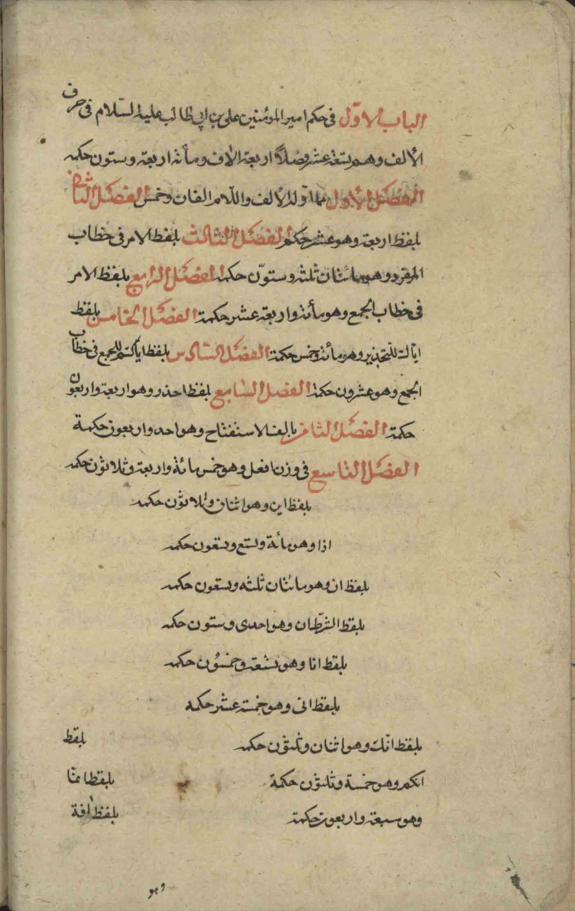 الباب الاول في حكم امير المؤمنين علي بن ابي طالب عليه السلام في حرف
الالف وهم تسعة عشر فصلا اربعة الاف ومأئة اربعة وستون حكمه
الفصل الاول مما اوله الالف واللام الفان وخمس الفصل الثاني
بلفظ اربعة وهو عشر حكم الفصل الثالث بلفظ الامر في خطاب
المفرد وهو مائتان ثلثة وستون حكمه الفصل الرابع بلفظ الامر
في خطاب الجمع وهو مأئة واربعة عشر حكمة الفصل الخامس بلفظ
اياك للتحذير وهو مأئة وخمس حكمة الفصل السادس بلفظ اياكم للجمع في خطاب
الجمع وهو عشرون حكمة الفصل السابع بلفظ احذر وهو اربعة واربعون
حكمة الفصل الثامن بالف الاستفتاح وهو احد واربعون حكمة
الفصل التاسع في وزن افعل وهو خمس مائة واربعة وثلاثون حكمه
بلفظ اين وهو اثنان وثلاثون حكمه
اذا وهو مأئة وتسع وتسعون حكمه
بلفظ ان وهو مائتان ثلثه وتسعون حكمه
بلفظ الشرطان وهو احدى وستون حكمه
بلفظ انا وهو تسعة وخمسون حكمه
بلفظ اني وهو خمسة عشر حكمه
بلفظ انك وهو اثنان وثلثون حكمه بلفظ
انكم وهو خمسة وثلثون حكمة بلفظ انما
وهو سبعة واربعون حكمة بلفظ افة
وهو